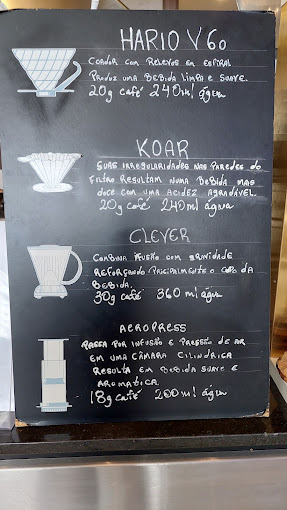 HARIO V60
COADOR COM RELEVOS EM ESPIRAL
PRODUZ UMA BEBIDA LIMPA E SUAVE.
20g café 240ml água
KOAR
SUAS IRREGULARIDADES NAS PAREDES DO
FILTRO RESULTAM NUMA BEBIDA MAIS
DOCE COM UMA ACIDEZ AGRADÁVEL.
20g café 240ml água
CLEVER
COMBINA INFUSÃO COM GRAVIDADE
REFORÇANDO PRICIPALMENTE O CORPO DA
BEBIDA.
30g café 360ml água
AEROPRESS
PASSA POR INFUSÃO E PRESSÃO DE AR
EM UMA CÂMARA CILINDRICA
RESULTA EM BEBIDA SUAVE E
AROMÁTICA
18g café 200ml água